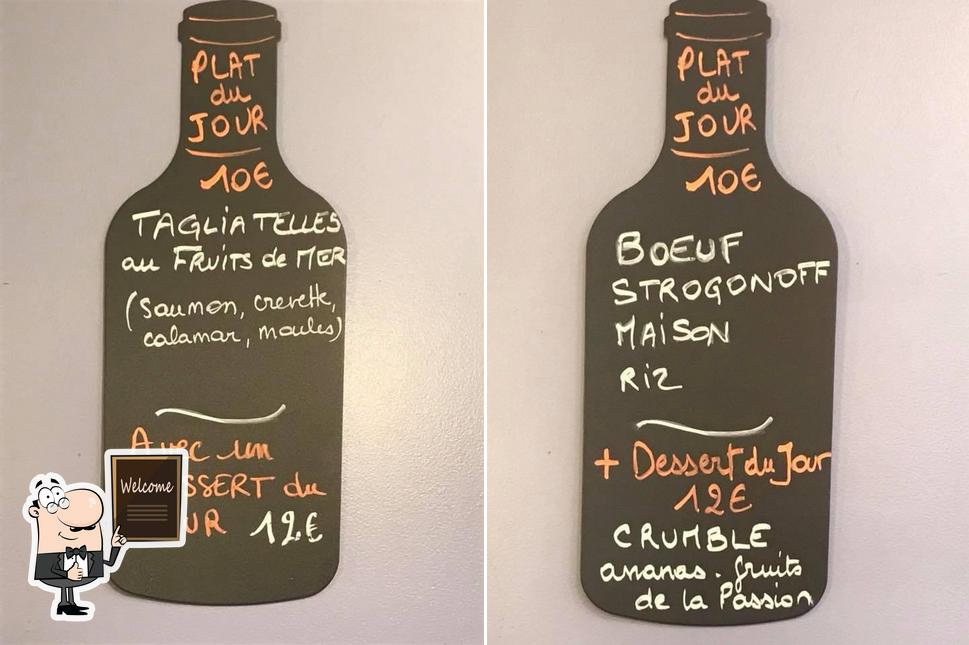 PLAT
du
JOUR
10€
TAGLIATELLES
au FRUITS de MER
(Saumon, crevette,
calamar, moules)
Avec un
SSERT du
UR 12€
Welcome
PLAT
du
JOUR
10€
BOEUF
STROGONOFF
MAISON
RIZ
+ Dessert du Jour
12€
CRUMBLE
ananas. fruits
de la Passion